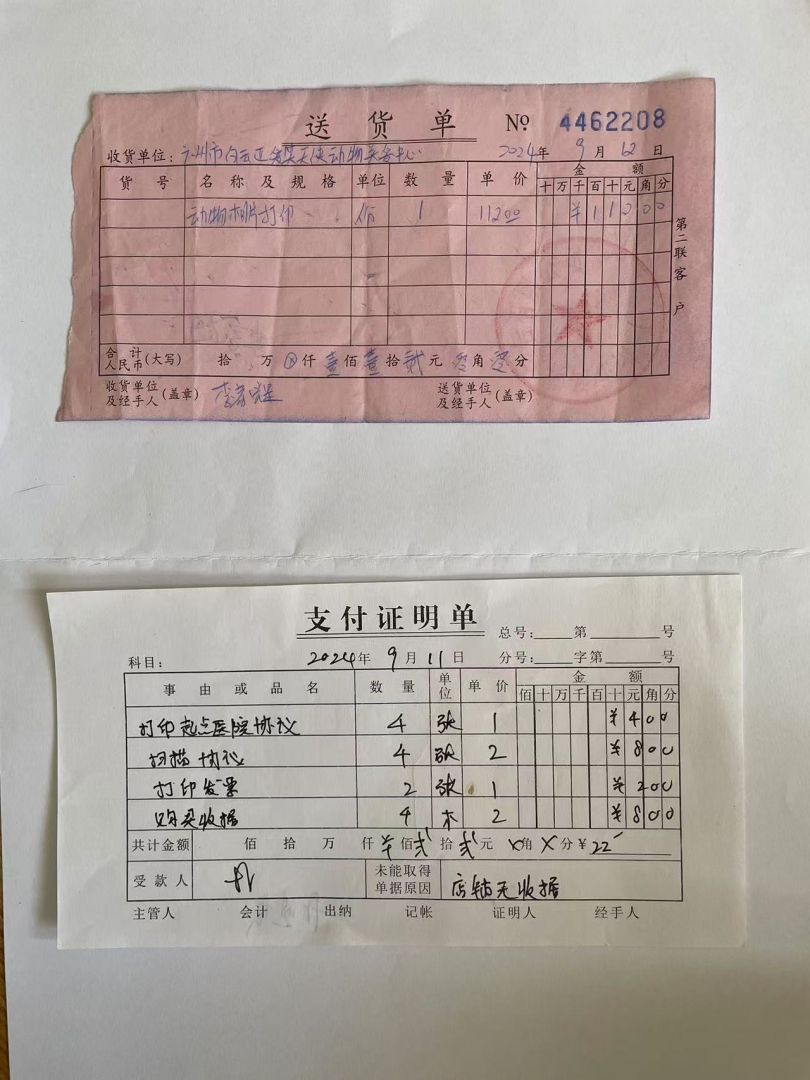 送货单 № 4462208
收货单位：广州市白云区 天使动物关爱中心 2024年9月12日
货号 名称及规格 单位 数量 单价 金额
十万千百十元角分
动物相片打印 份 1 11200 ¥11200
第二联客户
合计人民币(大写) 拾 万 ⊗仟壹佰壹拾贰元零角零分
收货单位及经手人(盖章) 送货单位及经手人(盖章)
支付证明单
总号：第 号
科目： 2024年9月11日 分号：字第 号
事由或品名 数量 单位 单价 金额
佰十万千百十元角分
打印起点医院协议 4 张 1 ¥400
扫描协议 4 张 2 ¥800
打印发票 2 张 1 ¥200
购买收据 4 本 2 ¥800
共计金额 佰 拾 万 仟 ¥佰贰拾贰元X角X分¥22
受款人 未能取得单据原因 店铺无收据
主管人 会计 出纳 记帐 证明人 经手人